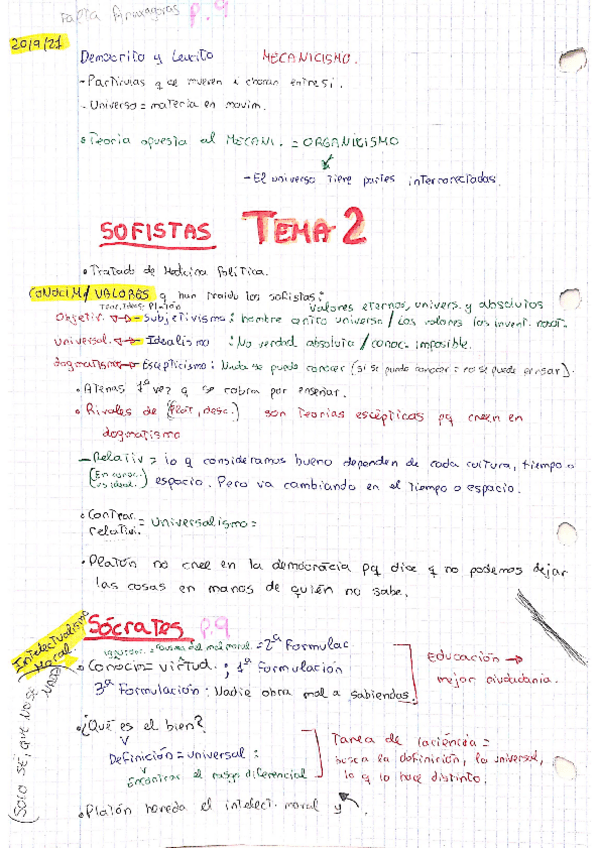 Falta Anaxagoras p.9
20/9/21
Demócrito y Leucito MECANICISMO.
- Partículas q se mueven i chocan entre sí.
- Universo = materia en movim.
• Teoría opuesta al MECANI. = ORGANICISMO
- El universo tiene partes interconectadas.
SOFISTAS TEMA 2
• Tratado de Medicina Política.
CONOCIM/VALORES q han traido los sofistas:
Platón valores eternos, univers. y absolutos
Objetiv. Subjetivismo: hombre centro universo / Los valores los invent.
universal. Idealismo : No verdad absoluta / conoc = imposible.
dogmatismo Escepticismo: Nada se puede conocer (si se puede conocer = no se puede expresar).
• Atenas 1ª vez q se cobra por enseñar.
• Rivales de (Plat, desc.) son teorías escépticas pq creen en
dogmatismo
- Relativ = lo q consideramos bueno dependen de cada cultura, tiempo o
espacio. Pero va cambiando en el tiempo o espacio.
• Contrar. relativi. = Universalismo =
• Platón no cree en la democracia pq dice q no podemos dejar
las cosas en manos de quién no sabe.
Intelectualismo Moral
Sócrates p.9
ignoran. = causa del mal moral. = 2ª Formulac.
• Conocim = virtud. ; 1ª Formulación
3ª Formulación: Nadie obra mal a sabiendas.
Educación →
mejor ciudadanía.
(SOLO SÉ, QUE NO SÉ NADA)
• ¿Qué es el bien?
Definición = universal :
Encontrar el rasgo diferencial
Tarea de la ciencia =
busca la definición, lo universal,
lo q lo hace distinto.
• Platón hereda el intelect. moral y